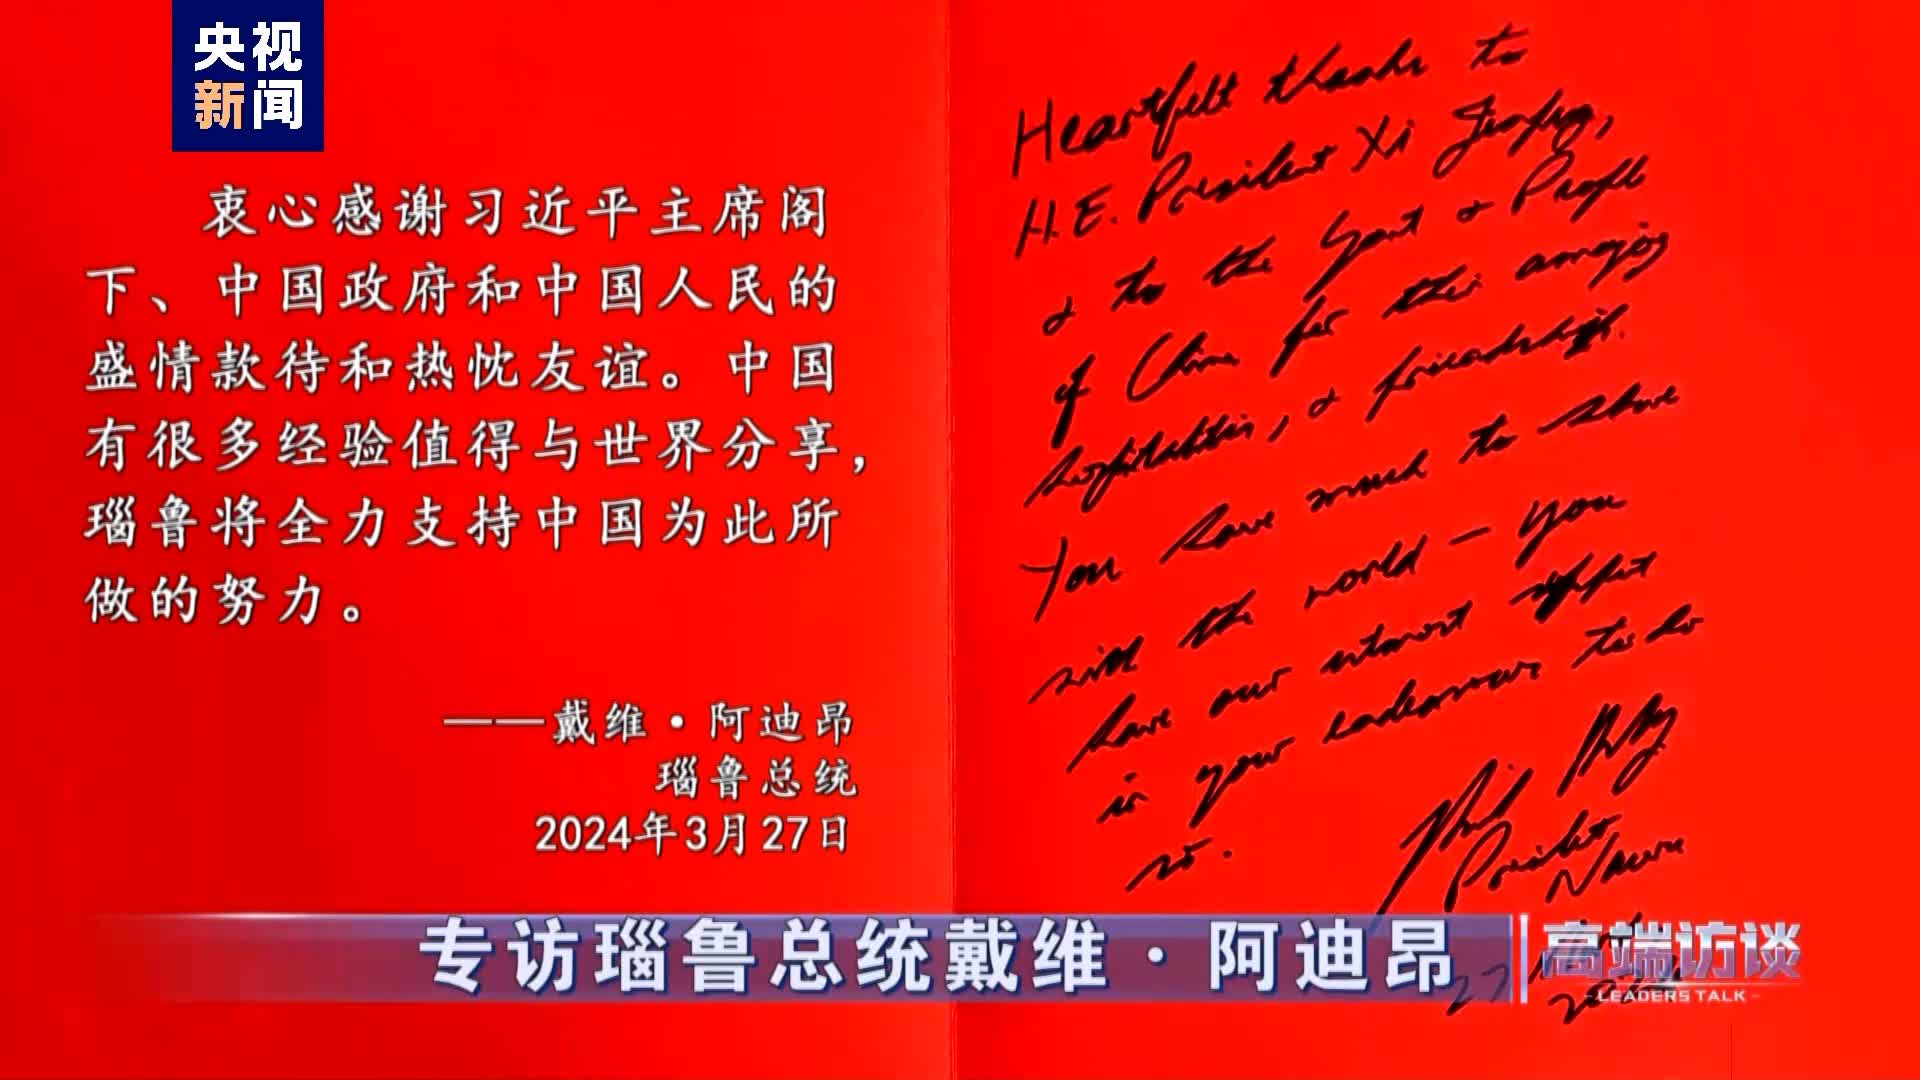 央视
新闻
衷心感谢习近平主席阁
下、中国政府和中国人民的
盛情款待和热忱友谊。中国
有很多经验值得与世界分享，
瑙鲁将全力支持中国为此所
做的努力。
——戴维·阿迪昂
瑙鲁总统
2024年3月27日
Heartfelt thanks to
H.E. President Xi Jinping,
& to the Govt & People
of China for the amazing
hospitality, & friendship.
You have much to share
with the world — you
have our utmost support
in your endeavours to do
so.
President
Nauru
27
专访瑙鲁总统戴维·阿迪昂
高端访谈
LEADERS TALK